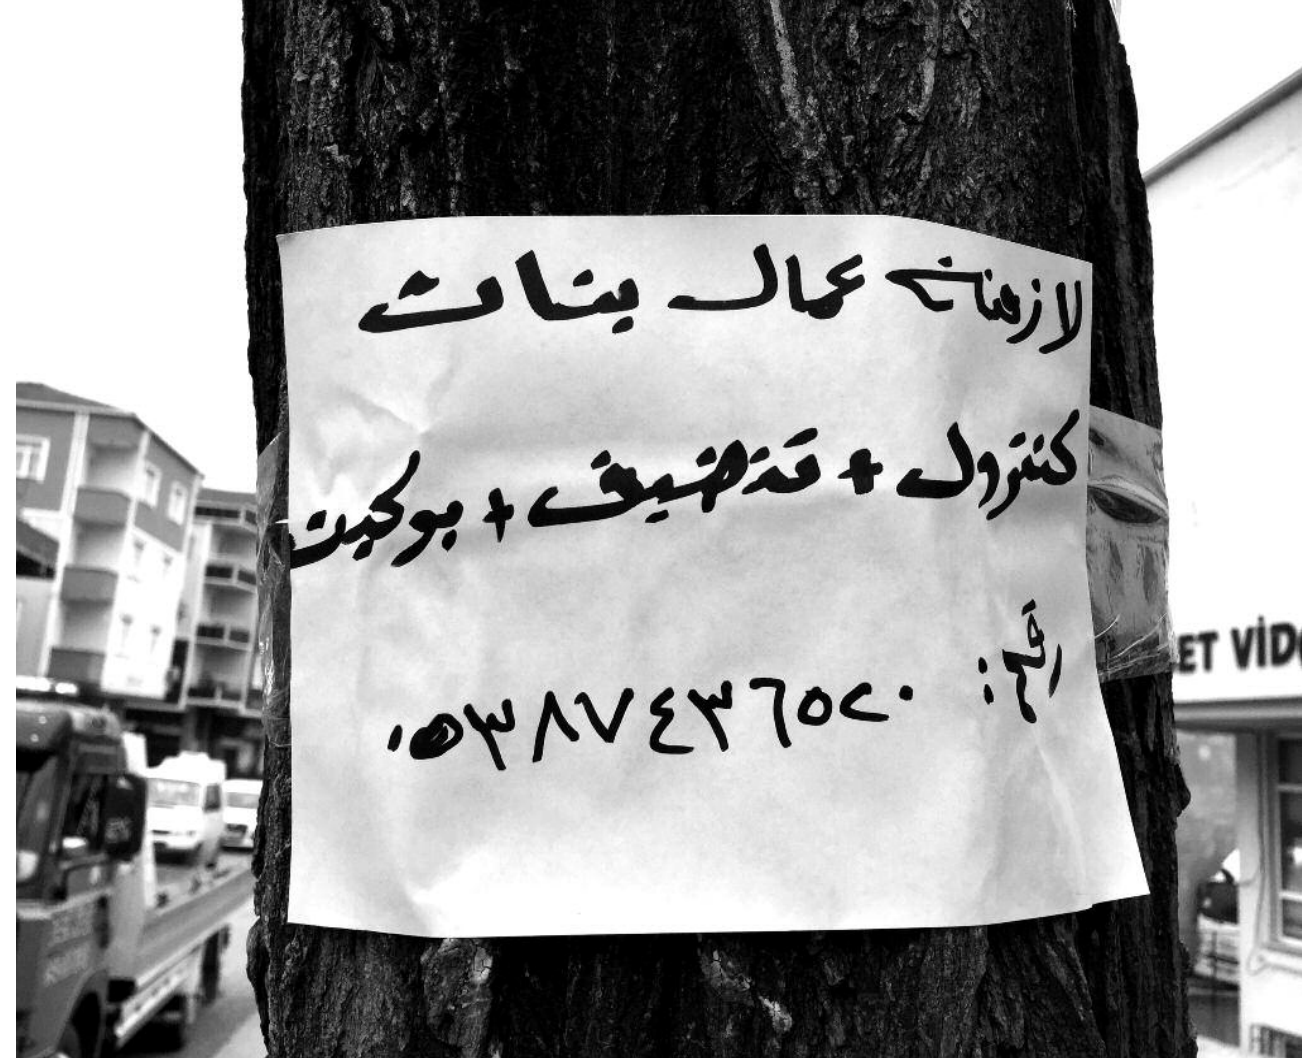 لازمنانه عمال بنات
كنترول + تنضيف + بوكيت
رقم: ٠٥٣٨٧٤٣٦٥٢٠
ET VİD